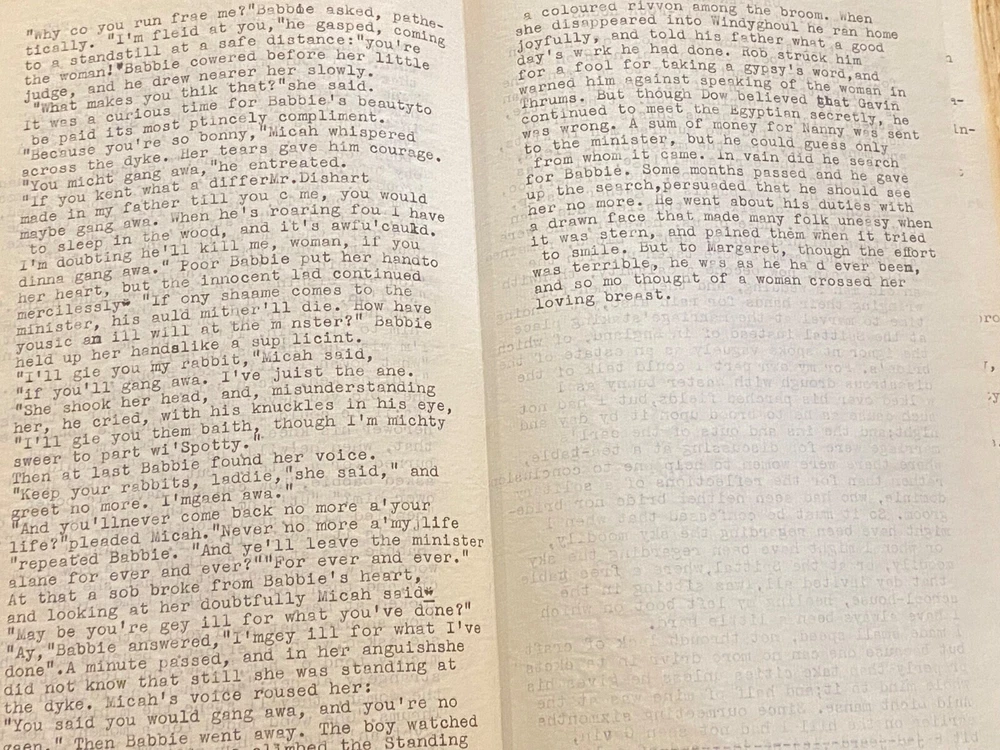 "Why co you run frae me?"Babbie asked, pathe-
tically. "I'm fleid at you,"he gasped, coming
to a standstill at a safe distance:"you're
the woman!"Babbie cowered before her little
judge, and he drew nearer her slowly.
"What makes you thik that?"she said.
It was a curious time for Babbie's beautyto
be paid its most ptincely compliment.
"Because you're so bonny,"Micah whispered
across the dyke. Her tears gave him courage.
"You micht gang awa,"he entreated.
"If you kent what a differMr.Dishart
made in my father till you c me, you would
maybe gang awa. When he's roaring fou I have
to sleep in the wood, and it's awfu'cauld.
I'm doubting he'll kill me, woman, if you
dinna gang awa." Poor Babbie put her handto
her heart, but the innocent lad continued
mercilessly" "If ony shaame comes to the
minister, his auld mither'll die. How have
yousic an ill will at the m nster?" Babbie
held up her handslike a sup licint.
"I'll gie you my rabbit,"Micah said,
"if you'll gang awa. I've juist the ane.
"She shook her head, and, misunderstanding
her, he cried, with his knuckles in his eye,
"I'll gie you them baith, though I'm michty
sweer to part wi'Spotty."
Then at last Babbie found her voice.
"Keep your rabbits, laddie,"she said," and
greet no more. I'mgaen awa."
"And you'llnever come back no more a'your
life?"pleaded Micah."Never no more a'my life
"repeated Babbie. "And ye'll leave the minister
alane for ever and ever?""For ever and ever."
At that a sob broke from Babbie's heart,
and looking at her doubtfully Micah said
"May be you're gey ill for what you've done?"
"Ay,"Babbie answered,"I'mgey ill for what I've
done".A minute passed, and in her anguishshe
did not know that still she was standing at
the dyke. Micah's voice roused her:
"You said you would gang awa, and you're no
gaen." Then Babbie went away. The boy watched
climbed the Standing
a coloured rivvon among the broom. When
she disappeared into Windyghoul he ran home
joyfully, and told his father what a good
day's w rk he had done. Rob struck him
for a fool for taking a gypsy's word,and
warned him against speaking of the woman in
Thrums. But though Dow believed that Gavin
continued to meet the Egyptian secretly, he
was wrong. A sum of money for Nanny was sent
to the minister, but he could guess only
from whom it came. In vain did he search
for Babbie. Some months passed and he gave
up the search,persuaded that he should see
her no more. He went about his duties with
a drawn face that made many folk uneasy when
it was stern, and pained them when it tried
to smile. But to Margaret, though the effort
was terrible, he was as he ha d ever been,
and so mo thought of a woman crossed her
loving breast.